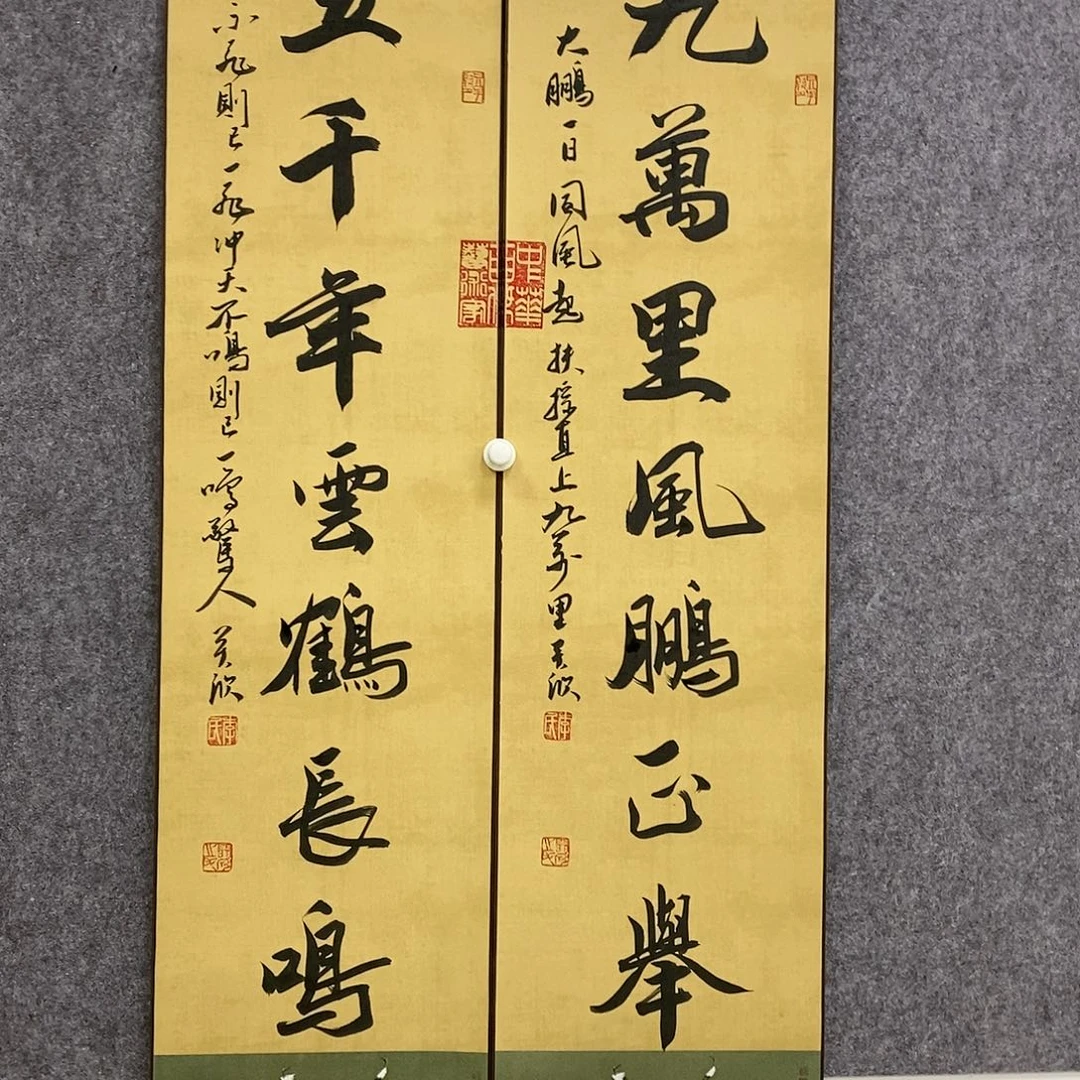 九萬里風鵬正舉
大鵬一日同風起扶搖直上九萬里
中華
藝術家
五千年雲鶴長鳴
不飛則已一飛冲天不鳴則已一鳴驚人